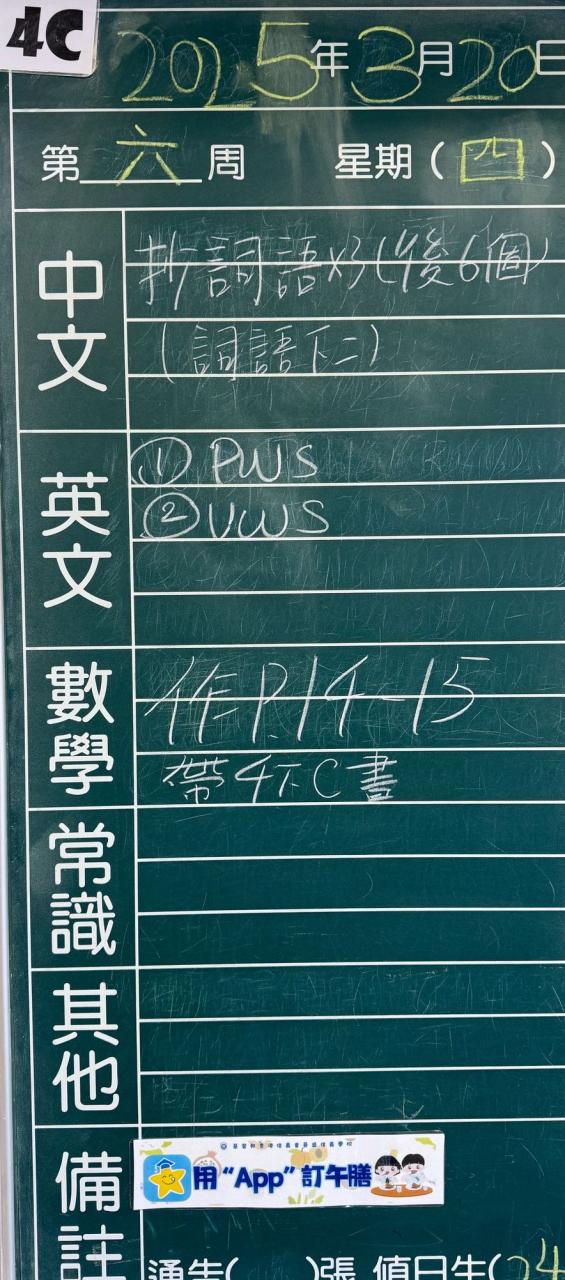 4C
2025年3月20日
第六周 星期(四)
中文
抄詞語x3(後6個)
(詞語下二)
英文
① PWS
② VWS
數學
作P.14-15
帶4下C書
常識
其他
備註
用“App”訂午膳
通告( )張 值日生(24